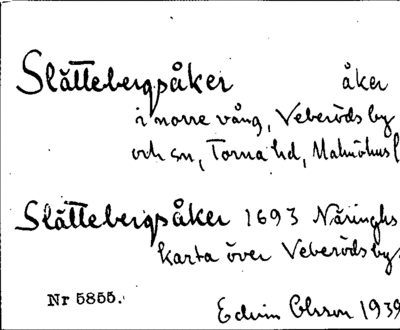 Slättebergsåker åker
i norre vång, Veberöds by
och sn, Torna hd, Malmöhus l
Slättebergsåker 1693 Näringhs
karta över Veberöds by.
Nr 5855.
Edvin Ohlsson 1939